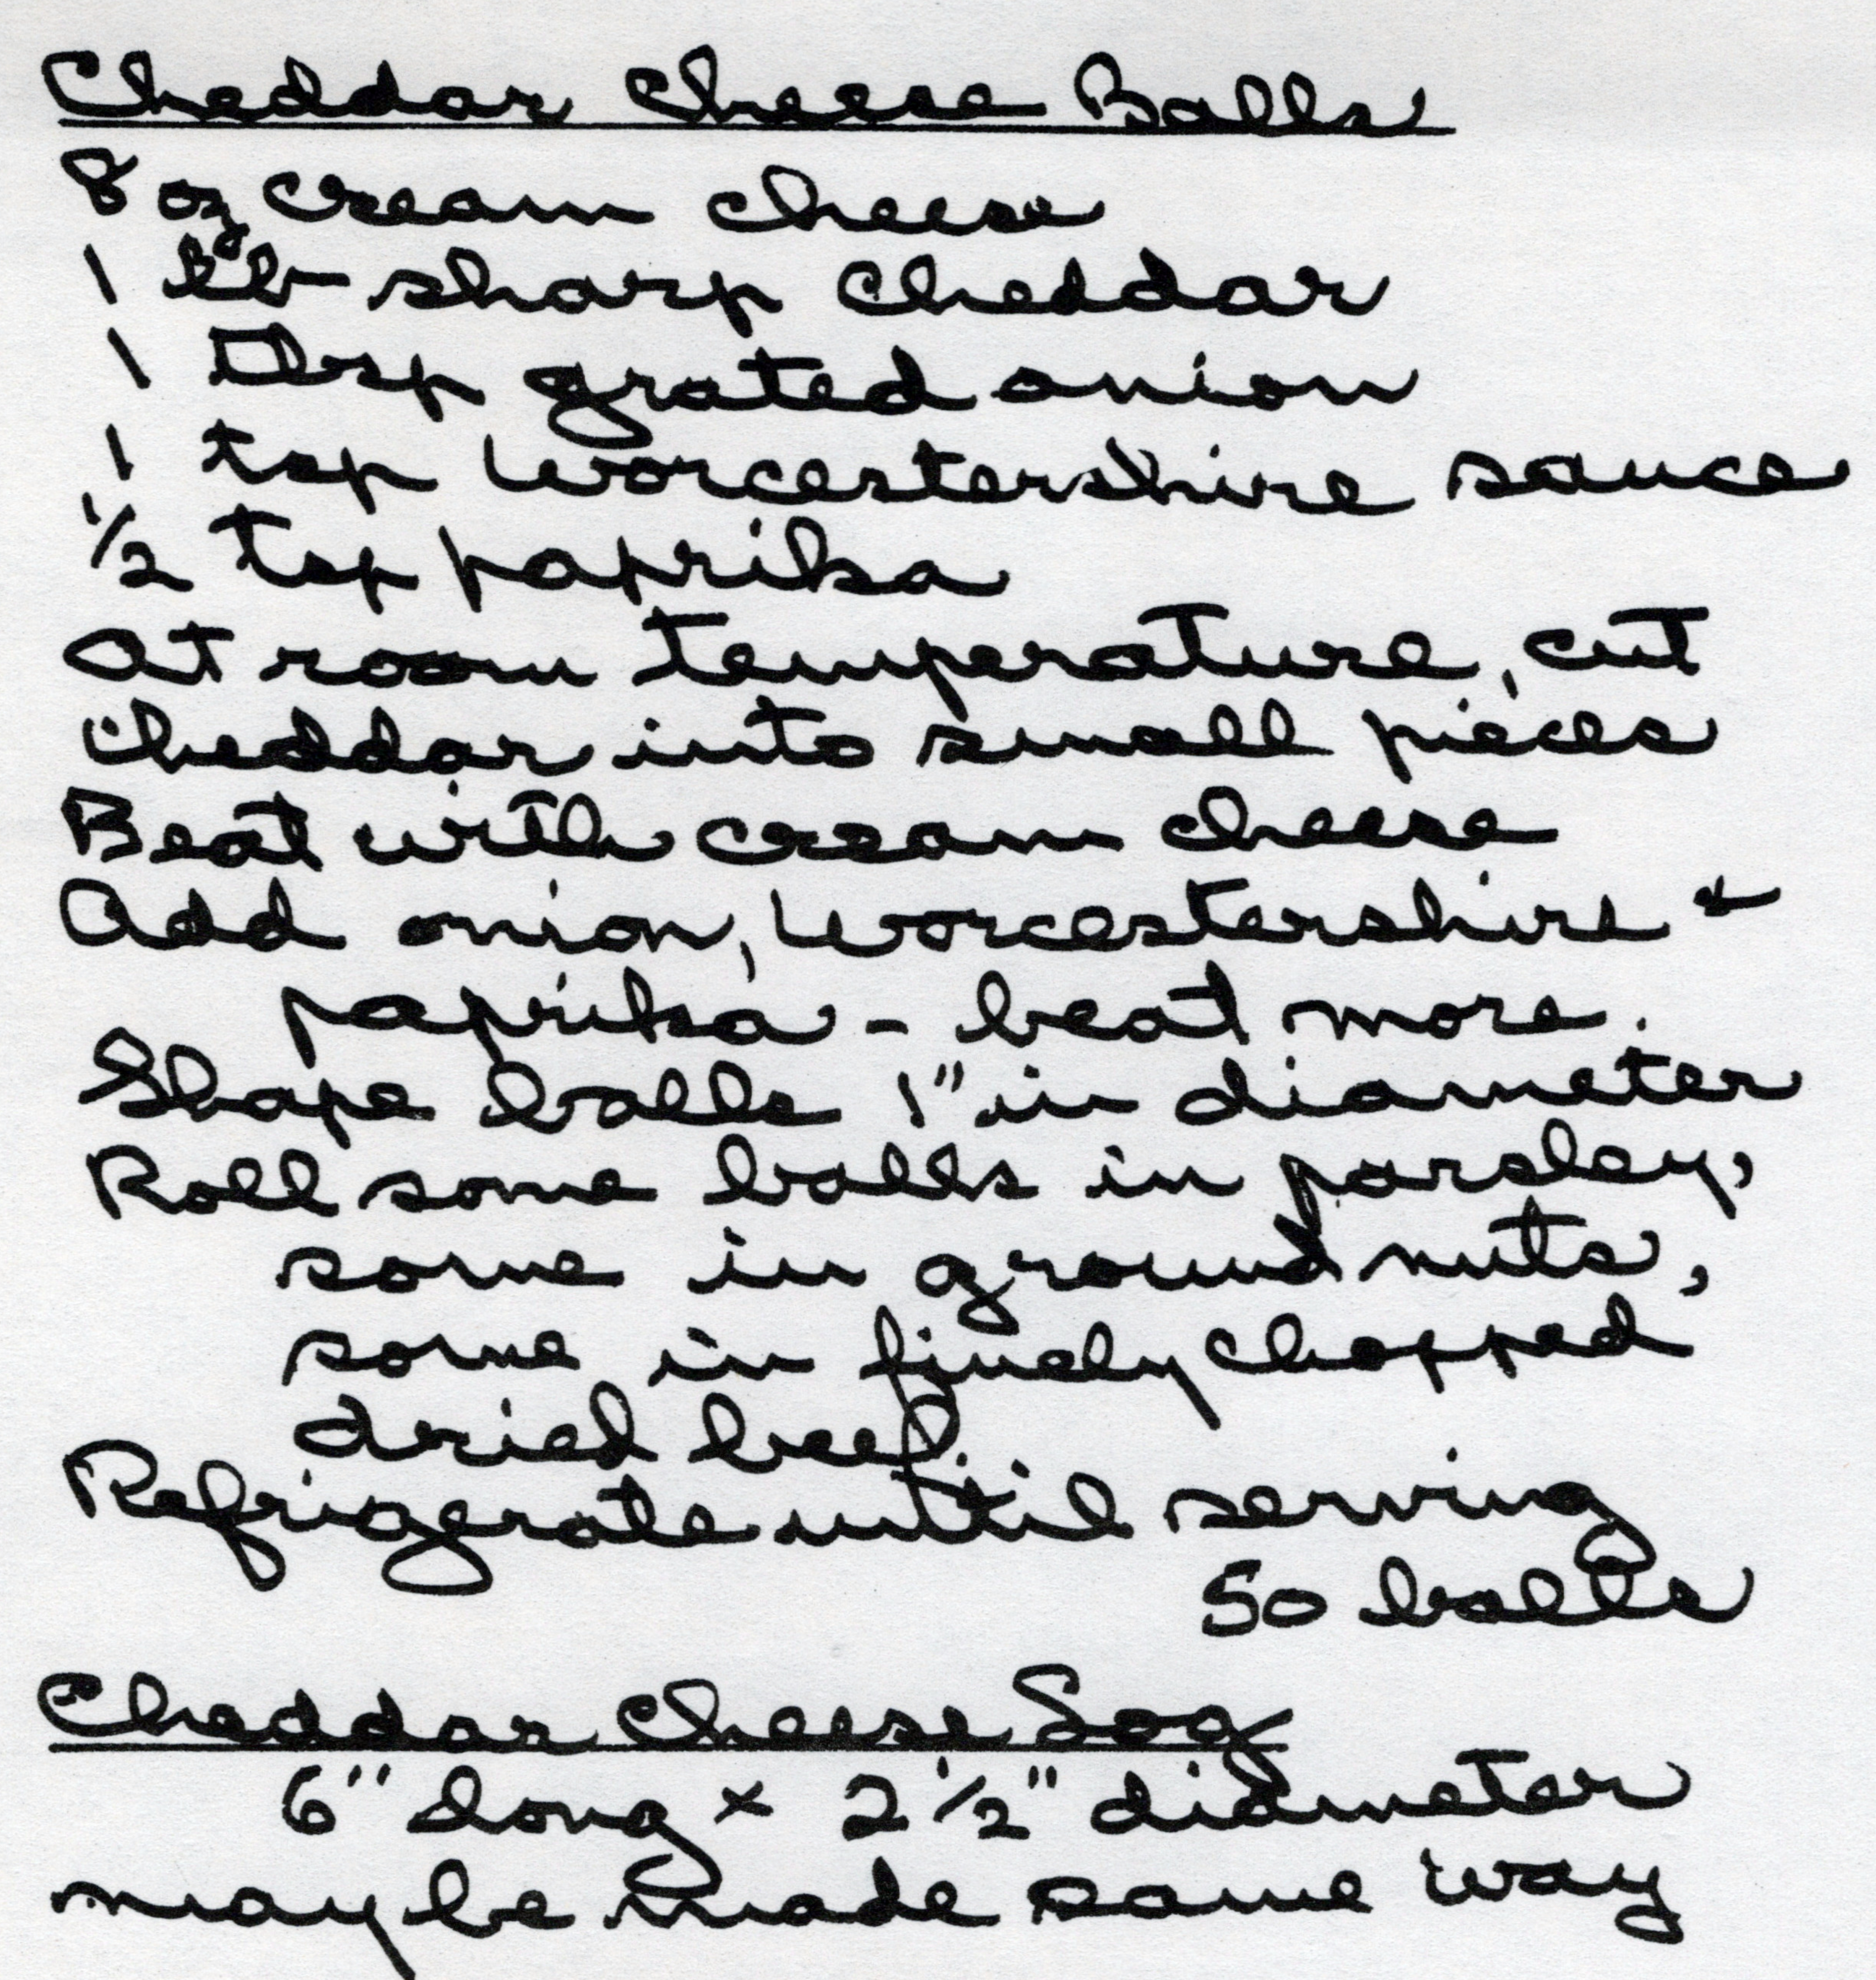 Cheddar Cheese Balls
8 oz cream cheese
1 lb sharp cheddar
1 Tbsp grated onion
1 tsp Worcestershire sauce
1/2 tsp paprika
At room temperature, cut
cheddar into small pieces
Beat with cream cheese
Add onion, Worcestershire &
paprika - beat more.
Shape balls 1" in diameter
Roll some balls in parsley,
some in ground nuts,
some in finely chopped
dried beef.
Refrigerate until serving
50 balls
Cheddar Cheese Log
6" long x 2 1/2" diameter
may be made same way